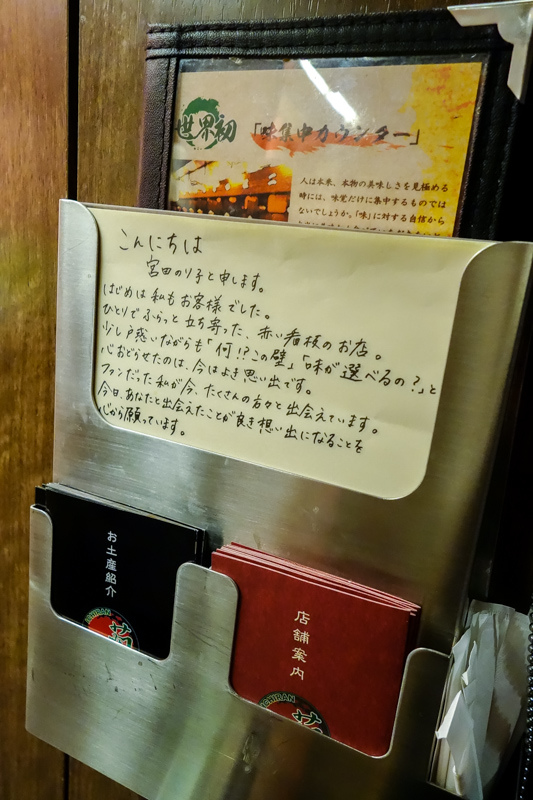 世界初 「味集中カウンター」
人は本来、本物の美味しさを見極める
時には、味覚だけに集中するものでは
ないでしょうか。「味」に対する自信から
こんにちは
宮田のり子と申します。
はじめは私もお客様でした。
ひとりでふらっと立ち寄った、赤い看板のお店。
少し戸惑いながらも「何!?この壁」「味が選べるの?」と
心おどらせたのは、今はよき思い出です。
ファンだった私が今、たくさんの方々と出会えています。
今日、あなたと出会えたことが良き想い出になることを
心から願っています。
お土産紹介
ICHIRAN
店舗案内
ICHIRAN